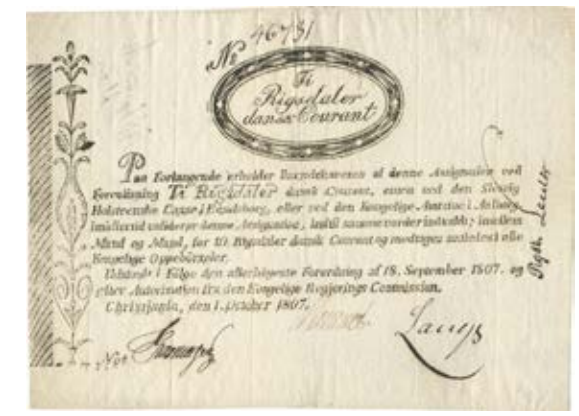 No 46731
Ti
Rigsdaler
dansk Courant
Paa Forlangende erholder Ihændehaveren af denne Assignation ved
Forevisning Ti Rigsdaler dansk Courant, enten ved den Slesvig
Holsteenske Casse i Rendsborg, eller ved den Kongelige i Aalborg
imidlertid validerer denne Assignation, indtil samme vorder indkaldt; imellem
Mand og Mand, for 10 Rigsdaler dansk Courant og modtages i alle
Kongelige Oppebørseler.
Udstædt i Følge den allerhøieste Forordning af 18. September 1807. og
efter Autorisation fra den Kongelige Regjerings Commission.
Christiania, den 1. October 1807.